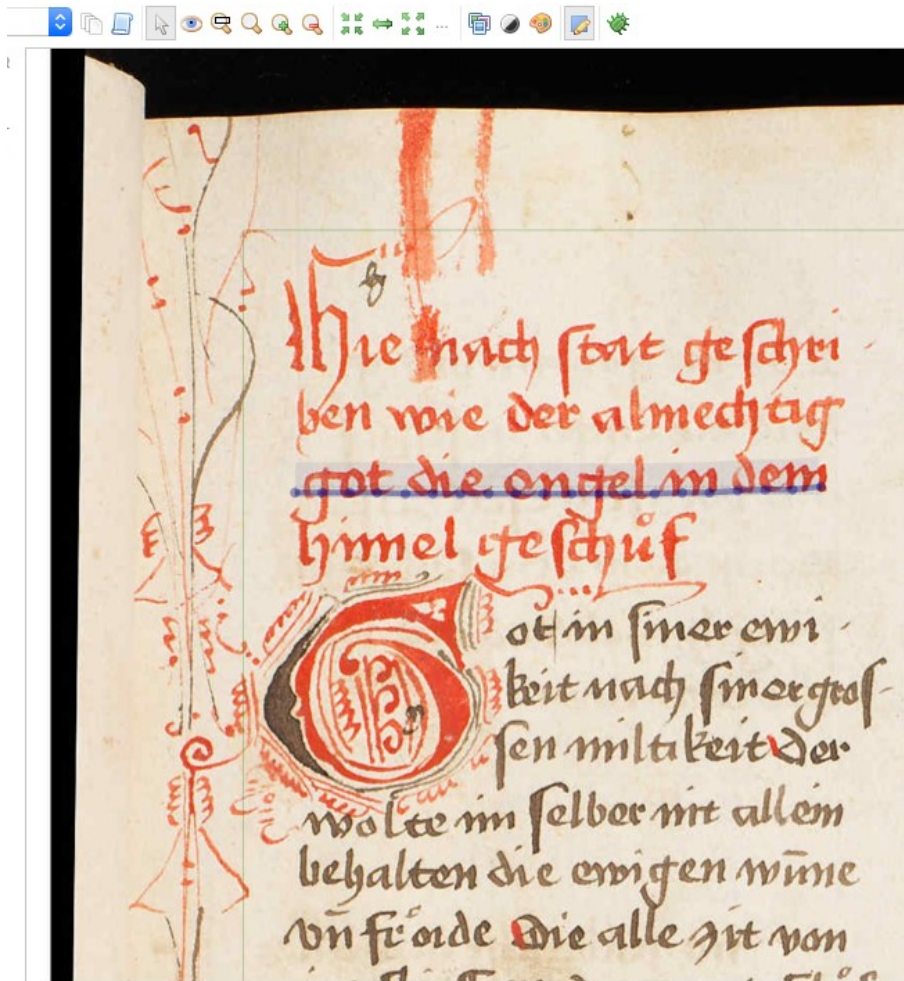 Hie nach stat geschri
ben wie der almechtig
got die engel in dem
himel geschůf
Got in siner ewi
keit nach siner gros-
sen miltikeit Der
wolte im selber nit allein
behalten die ewigen wūne
vn̄ frǒide Die alle zit von